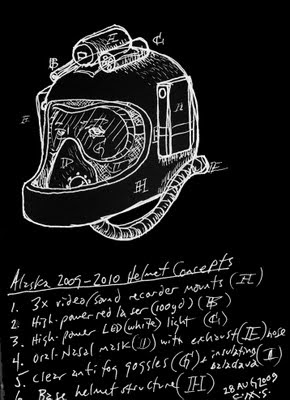 A
C
B
A
A
G
D
H
E
Alaska 2009-2010 Helmet Concepts
1. 3x video/sound recorder mounts (A)
2. High-power red laser (100yd) (B)
3. High-power LED (white) light (C)
4. Oral-Nasal mask (D) with exhaust (E) hose
5. Clear antifog goggles (G) + insulating
balaclava
6. Base helmet structure (H)
28 AUG 2009
C.M.S.